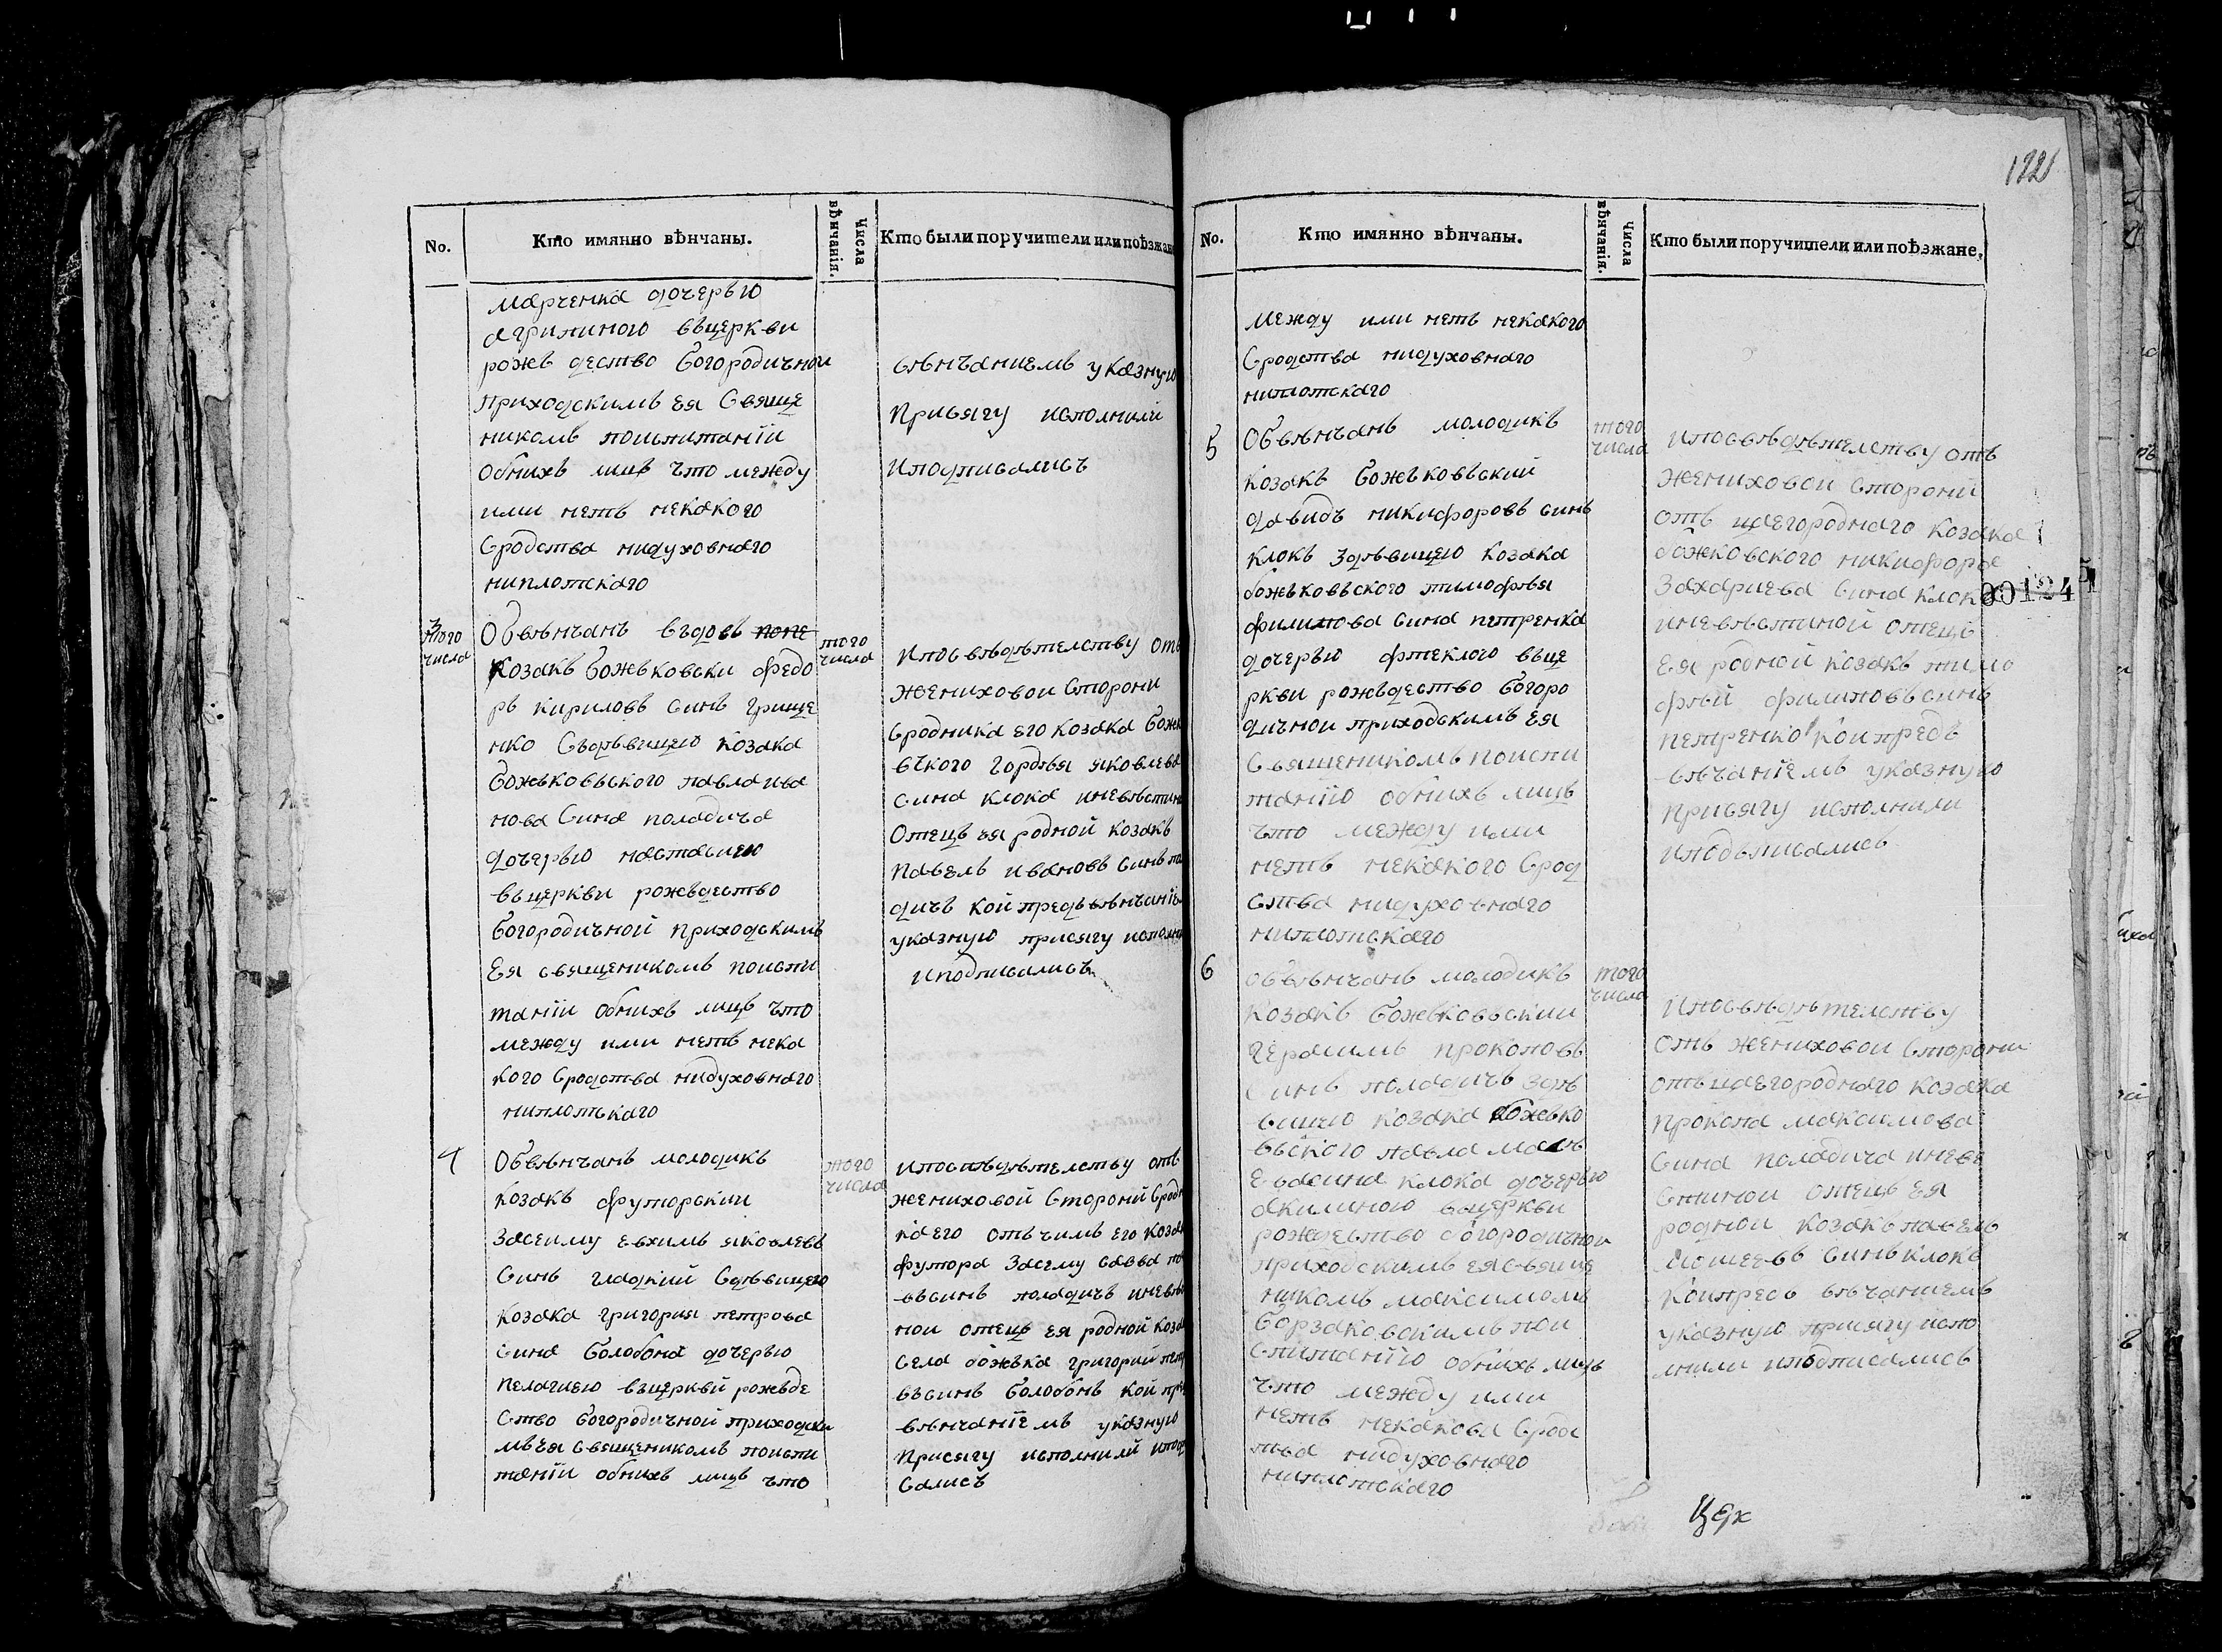 No.
Кто имянно вѣнчаны.
Числа вѣнчанія.
Кто были поручители или поѣзжане
марченка дочерью
агрипиною въцеркви
рожъ дество богородичнои
приходскимъ ея Свяще
никомъ поиспитаніи
обоихъ лицъ что между
ими нетъ некакого
Сродства нидуховнаго
ниплотскаго
вѣнчаниемъ указную
Присягу исполнили
иподписались
3
того числа
Обвѣнчанъ вдовъ
Козакъ божъковски федо
ръ кириловъ синъ грище
нко Сьдѣвицею козака
Божъковьского павла ива
нова Сина поладича
дочерью настасиею
въцеркви рожъдество
богородичной приходскимъ
Ея священикомъ поиспи
таніи обоихъ лицъ что
между ими нетъ нека
кого Сродства нидуховнаго
ниплотскаго
того числа
ипосвѣдѣтелству отъ
жениховои Сторони
Сродника его козака
вского гордѣя яковлева
сина клока
Отецъ ея родной козакъ
Павелъ ивановъ Синъ
дичъ кой предъвѣнчаніе
указную присягу
иподписались
4
Обвѣнчанъ молодикъ
козакъ футорскии
евхимъ яковлевъ
Синъ гладкий Сдѣвицею
козака григория петрова
сина болобона дочерью
пелагиею въцерквй рожъде
Ство богородичной приходски
мъ ея священикомъ поиспи
таніи обоихъ лицъ что
того числа
ипосвѣдѣтелству отъ
жениховой Стороній
каего отъчимъ его
футора савва
въсинъ поладичъ
нои отецъ ея родной
Села божъка григорий
въсинъ болобонъ кой
вѣнчаніемъ указную
Присягу исполнилй
Сались
1221
No.
Кто имянно вѣнчаны.
Числа вѣнчанія.
Кто были поручители или поѣзжане,
между ими нетъ некакого
Сродства нидуховнаго
ниплотскаго
5
Обвѣнчанъ молодикъ
козакъ божъковьский
давидъ никифоровъ синъ
клокъ здѣвицею козака
божъковьского тимофѣя
филипова сина петренка
дочерью фтеклою вьце
ркви рожъдество богоро
дичнои приходскимъ ея
Священикомъ поиспи
танію обоихъ лицъ
что между ими
нетъ некакого Срод
ства нидуховнаго
ниплотскаго
того числа
ипосвѣдѣтелству отъ
жениховои стороній
отъ козака
божковского никифора
Захариева Сина клок
отецъ
Ея родной козакъ тимо
фѣй филиповъсинъ
петренко кои предъ
вѣчаніемъ указную
присягу исполнили
иподъписались
00124
6
обвѣнчанъ молодикъ
козакъ божъковьскии
герасимъ прокоповъ
Синъ поладичъ здѣ
вицею козака божъко
вьского павла
сина клока дочерью
акилиною вьцеркви
рождество богородичнои
приходскимъ ея Свяще
никомъ максимомъ
борзаковскимъ пои
спитанію обоихъ лицъ
что между ими
нетъ некакова Срод
тва нидуховнаго
ниплотскаго
того числа
ипосвѣдѣтелству
отъ жениховои Сторони
козака
прокопа максимова
Сина поладича
отецъ ея
роднои козакъ павелъ
синъ клокъ
вѣчаниемъ
указную присягу испо
лнили иподписались
Цер